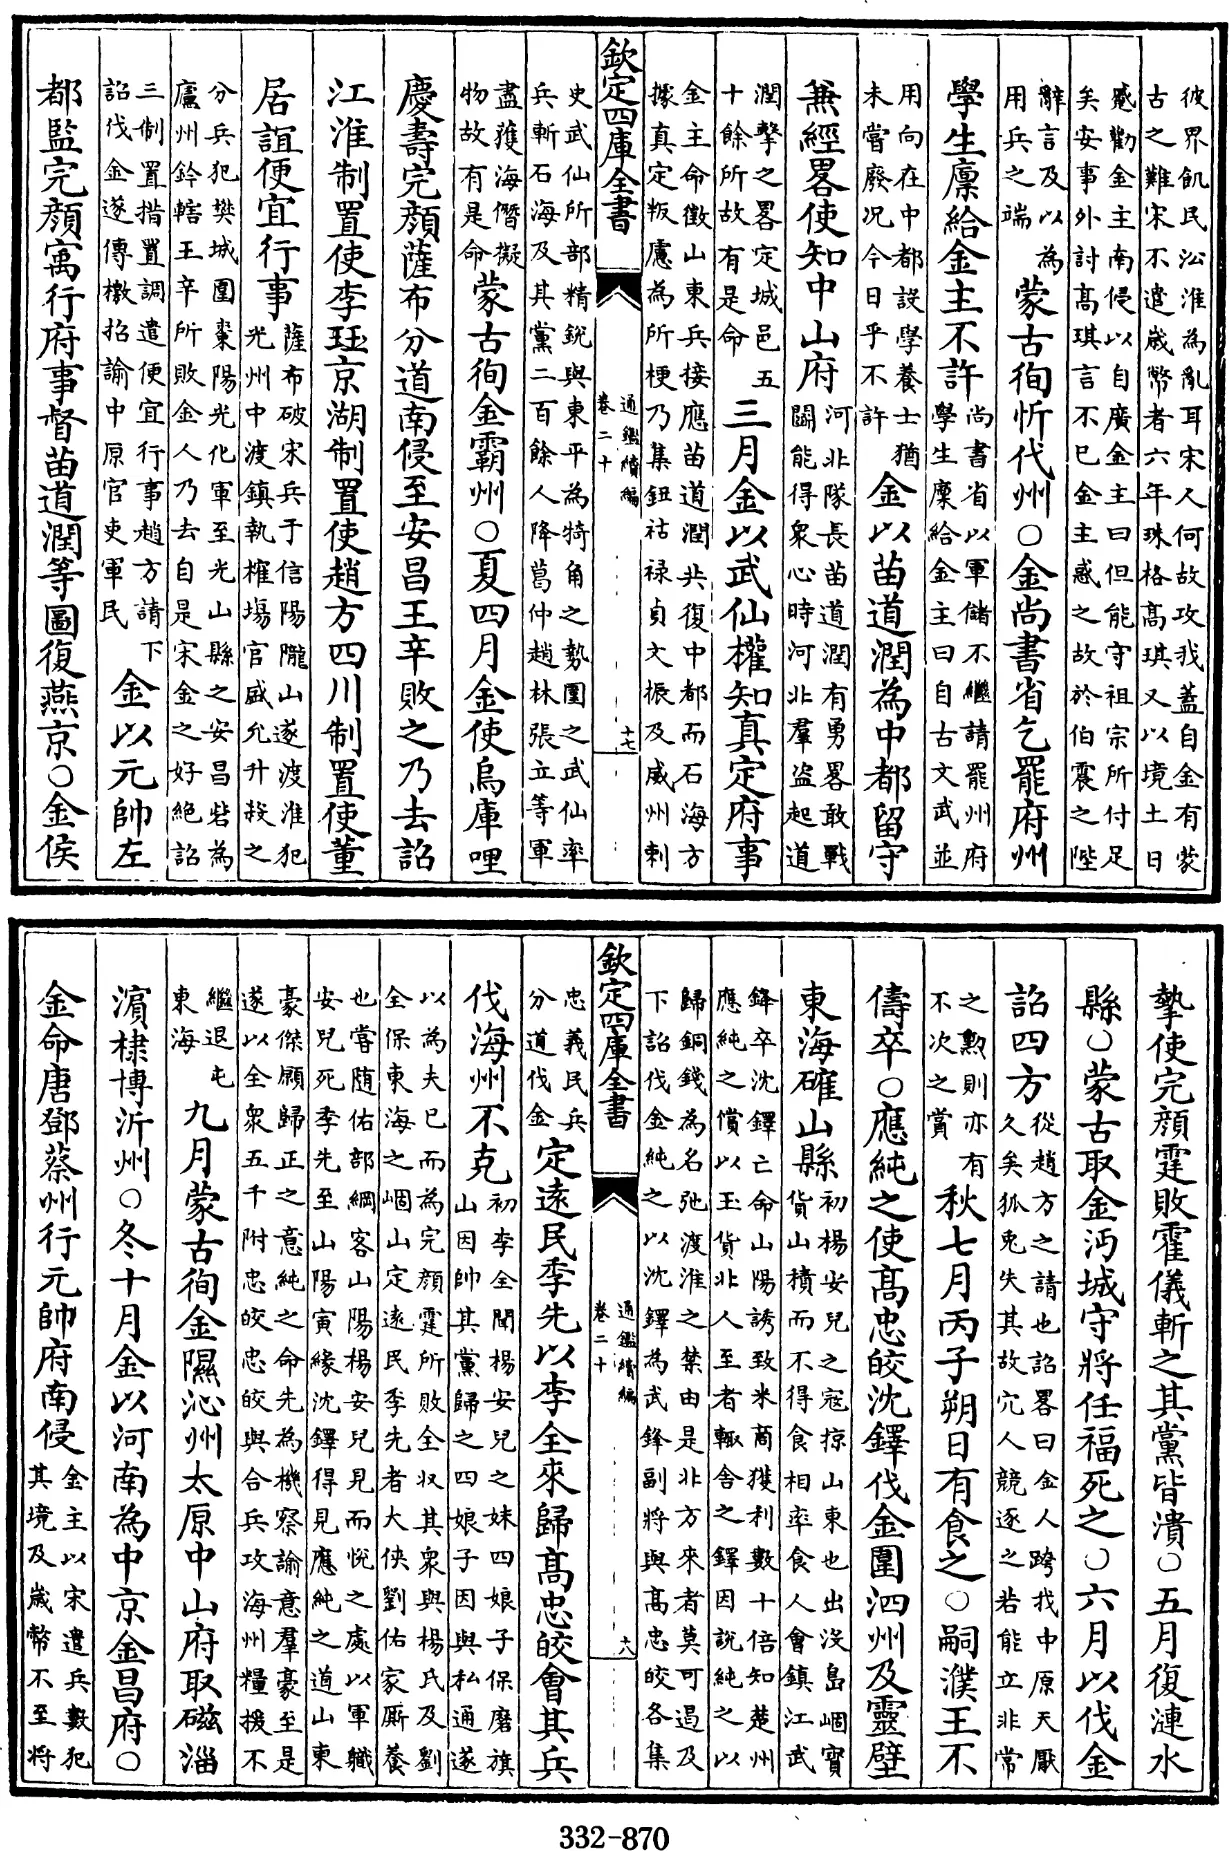 彼界飢民沿淮為亂耳宋人何故攻我蓋自金有蒙
古之難宋不遣歲幣者六年珠格高琪又以境土日
蹙勸金主南侵以自廣金主曰但能守祖宗所付足
矣安事外討高琪言不已金主惑之故於伯震之陛
辭言及以為
用兵之端
蒙古徇忻代州○金尚書省乞罷府州
學生廩給金主不許
尚書省以軍儲不繼請罷州府
學生廩給金主曰自古文武並
用向在中都設學養士猶
未嘗廢况今日乎不許
金以苗道潤為中都留守
兼經畧使知中山府
河北隊長苗道潤有勇畧敢戰
闘能得衆心時河北羣盗起道
潤擊之畧定城邑五
十餘所故有是命
三月金以武仙權知真定府事
金主命徵山東兵接應苗道潤共復中都而石海方
據真定叛慮為所梗乃集鈕祜禄貞文振及威州刺
欽定四庫全書
通鑑續編
卷二十
十七
史武仙所部精鋭與東平為犄角之勢圖之武仙率
兵斬石海及其黨二百餘人降葛仲趙林張立等軍
盡獲海僭擬
物故有是命
蒙古徇金霸州○夏四月金使烏庫哩
慶壽完顔薩布分道南侵至安昌王辛敗之乃去詔
江淮制置使李珏京湖制置使趙方四川制置使董
居誼便宜行事
薩布破宋兵于信陽隴山遂渡淮犯
光州中渡鎮執榷塲官盛允升殺之
分兵犯樊城圍棗陽光化軍至光山縣之安昌砦為
廬州鈐轄王辛所敗金人乃去自是宋金之好絶詔
三制置措置調遣便宜行事趙方請下
詔伐金遂傳檄招諭中原官吏軍民
金以元帥左
都監完顔㝢行府事督苗道潤等圖復燕京○金侯
摯使完顔霆敗霍儀斬之其黨皆潰○五月復漣水
縣○蒙古取金沔城守將任福死之○六月以伐金
詔四方
從趙方之請也詔畧曰金人跨我中原天厭
久矣狐兎失其故穴人競逐之若能立非常
之勲則亦有
不次之賞
秋七月丙子朔日有食之○嗣濮王不
儔卒○應純之使高忠皎沈鐸伐金圍泗州及靈壁
東海確山縣
初楊安兒之宼掠山東也出沒島崓寳
貨山積而不得食相率食人會鎮江武
鋒卒沈鐸亡命山陽誘致米商獲利數十倍知楚州
應純之償以玉貨北人至者輙舎之鐸因說純之以
歸銅錢為名弛渡淮之禁由是北方來者莫可遏及
下詔伐金純之以沈鐸為武鋒副將與高忠皎各集
欽定四庫全書
通鑑續編
卷二十
十八
忠義民兵
分道伐金
定逺民季先以李全來歸高忠皎會其兵
伐海州不克
初李全聞楊安兒之妹四娘子保磨旗
山因帥其黨歸之四娘子因與私通遂
以為夫已而為完顔霆所敗全收其衆與楊氏及劉
全保東海之崓山定逺民季先者大俠劉佑家厮養
也嘗隨佑部綱客山陽楊安兒見而悅之處以軍職
安兒死季先至山陽寅緣沈鐸得見應純之道山東
豪傑願歸正之意純之命先為機察諭意羣豪至是
遂以全衆五千附忠皎忠皎與合兵攻海州糧援不
繼退屯
東海
九月蒙古徇金隰沁州太原中山府取磁淄
濵棣博沂州○冬十月金以河南為中京金昌府○
金命唐鄧蔡州行元帥府南侵
金主以宋遣兵數犯
其境及歲幣不至將
332-870